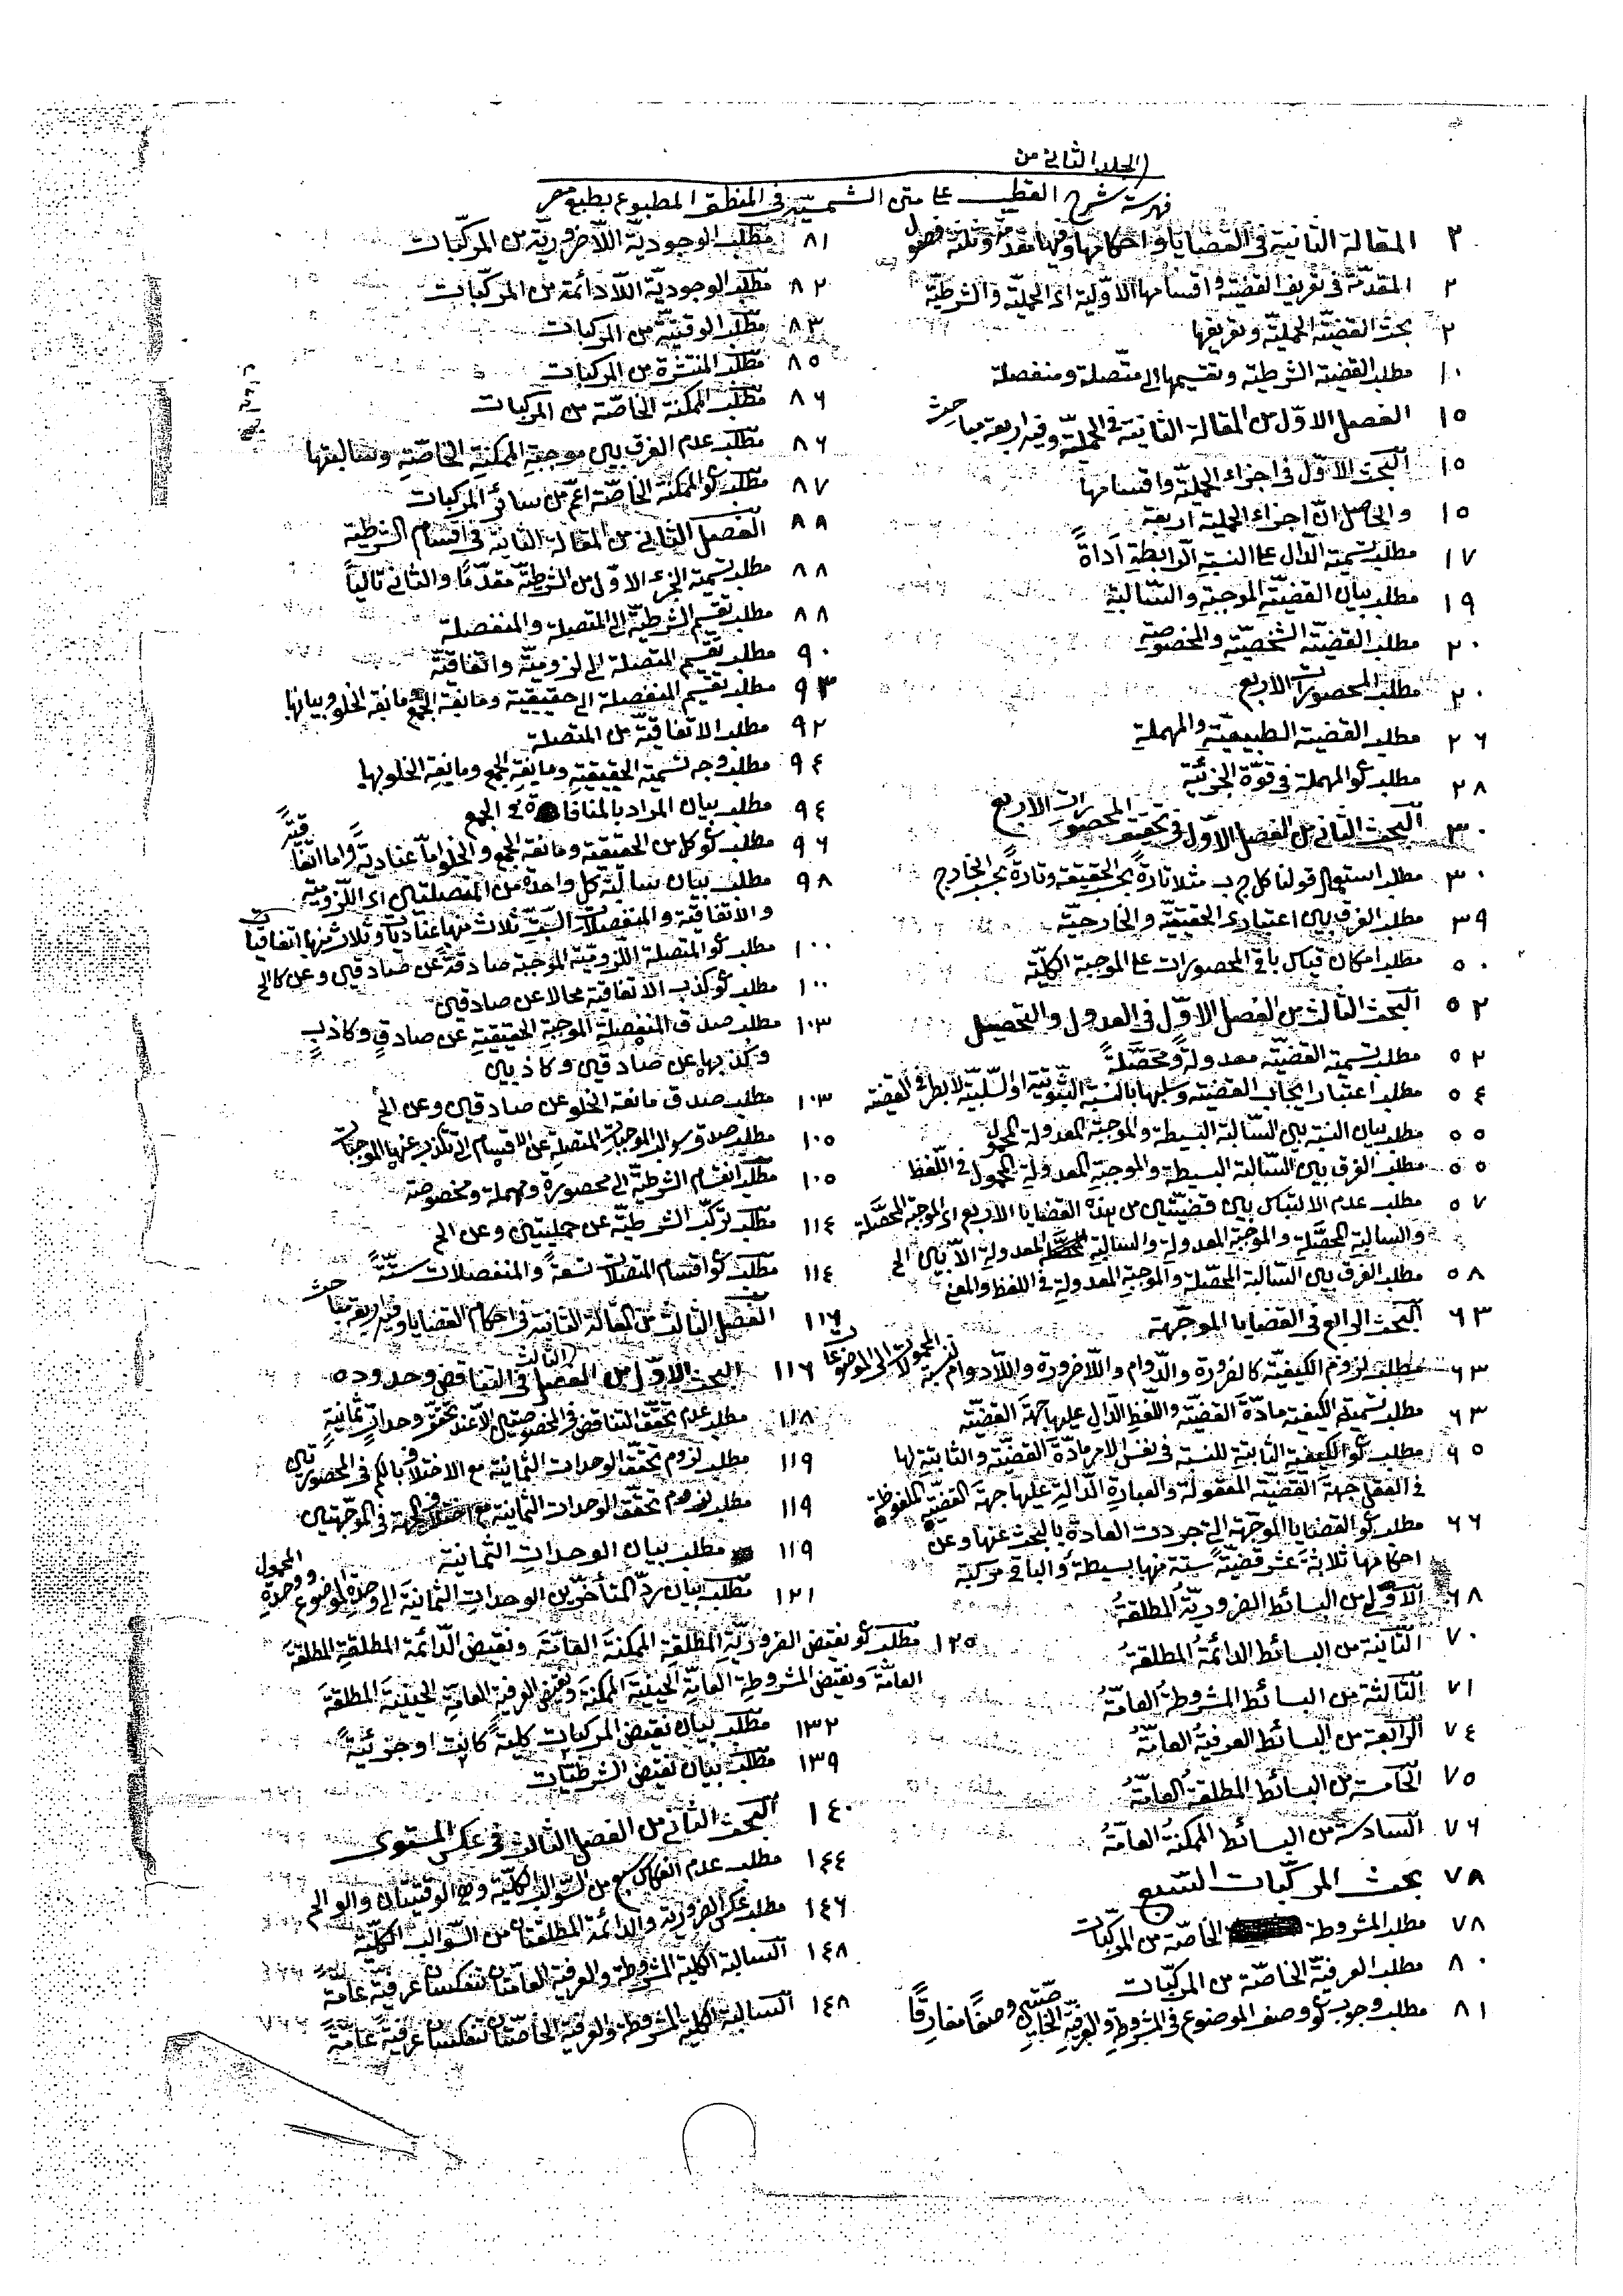 الجلد الثاني من
فهرسة شرح القطب على متن الشمسيّة في المنطق المطبوع بطبع مصر
٢ المقالة الثانية في القضايا واحكامها وفيها مقدّمة وثلثة فصول
٢ المقدّمة في تعريف القضيّة واقسامها الاوّليّة اى الحمليّة والشرطيّة
٢ بحث القضيّة الحمليّة وتعريفها
١٠ مطلب القضيّة الشرطيّة وتقسيمها الى متّصلة ومنفصلة
١٥ الفصل الاوّل من المقالة الثانية في الحمليّة وفيه اربعة مباحث
١٥ البحث الاوّل في اجزاء الحمليّة واقسامها
١٥ والحاصل انّ اجزاء الحمليّة اربعة
١٧ مطلب تسمية الدّال على النسبة الرّابطة اداةً
١٩ مطلب بيان القضيّة الموجبة والسّالبة
٢٠ مطلب القضيّة الشخصيّة والمخصوصة
٢٠ مطلب المحصورات الاربع
٢٦ مطلب القضيّة الطبيعيّة والمهملة
٢٨ مطلب كو المهملة في قوّة الجزئيّة
٣٠ البحث الثاني من الفصل الاوّل في تحقيق المحصورات الاربع
٣٠ مطلب استعمال قولنا كل ج ب مثلا تارةً بحسب الحقيقة وتارةً بحسب الخارج
٣٩ مطلب الفرق بين اعتبارى الحقيقيّة والخارجيّة
٥٠ مطلب امكان قياس باقي المحصورات على الموجبة الكليّة
٥٢ البحث الثالث من الفصل الاوّل في العدول والتحصيل
٥٢ مطلب تسمية القضيّة معدولةً ومحصّلةً
٥٤ مطلب اعتبار ايجاب القضيّة وسلبها بالنسبة الثبوتيّة او السّلبيّة لا بطرفي القضيّة
٥٥ مطلب بيان النسبة بين السّالبة البسيطة والموجبة المعدولة المحمول
٥٥ مطلب الفرق بين السّالبة البسيطة والموجبة المعدولة المحمول في اللّفظ
٥٧ مطلب عدم الالتباس بين قضيّتين من هذه القضايا الاربع اى الموجبة المحصّلة
والسالبة المحصّلة والموجبة المعدولة والسالبة المعدولة الاّ بين الخ
٥٨ مطلب الفرق بين السّالبة المحصّلة والموجبة المعدولة في اللفظ والمعنى
٦٣ البحث الرابع في القضايا الموجّهة
٦٣ مطلب لزوم الكيفيّة كالضرورة والدّوام واللّاضرورة واللّادوام لنسبة المحمولات الى الموضوعات
٦٣ مطلب تسمية الكيفيّة مادّة القضيّة واللّفظ الدّال عليها جهة القضيّة
٦٥ مطلب كو الكيفية الثابتة للنسبة في نفس الامر مادّة القضيّة والثابتة لها
في العقل جهة القضيّة المعقولة والعبارة الدّالة عليها جهة القضيّة الملفوظة
٦٦ مطلب كو القضايا الموجّهة التى جردت العادة بالبحث عنها وعن
احكامها ثلاثة عشر قضيّة ستة منها بسيطة والباقي مركبة
٦٨ الاوّلى من البسائط الضروريّة المطلقة
٧٠ الثّانية من البسائط الدائمة المطلقة
٧١ الثّالثة من البسائط المشروطة العامّة
٧٤ الرابعة من البسائط العرفيّة العامّة
٧٥ الخامسة من البسائط المطلقة العامّة
٧٦ السّادسة من البسائط الممكنة العامّة
٧٨ بحث المركّبات السّبع
٧٨ مطلب المشروطة الخاصّة من المركّبات
٨٠ مطلب العرفيّة الخاصّة من المركّبات
٨١ مطلب وجوب كو وصف الموضوع في المشروطة والعرفيّة الخاصّتين وصفًا مفارقًا
٨١ مطلب الوجوديّة اللّاضروريّة من المركّبات
٨٢ مطلب الوجوديّة اللّادائمة من المركّبات
٨٣ مطلب الوقتيّة من المركبات
٨٥ مطلب المنتشرة من المركبات
٨٦ مطلب الممكنة الخاصّة من المركبات
٨٦ مطلب عدم الفرق بين موجبة الممكنة الخاصّة وسالبتها
٨٧ مطلب كو الممكنة الخاصّة اعمّ من سائر المركبات
٨٨ الفصل الثاني من المقالة الثانية في اقسام الشرطيّة
٨٨ مطلب تسمية الجزء الاوّل من الشرطيّة مقدّمًا والثاني تاليًا
٨٨ مطلب تقسيم الشرطيّة الى المتصلة والمنفصلة
٩٠ مطلب تقسيم المتصلة الى لزوميّة واتفاقيّة
٩٣ مطلب تقسيم المنفصلة الى حقيقية ومانعة الجمع ومانعة الخلو وبيانها
٩٢ مطلب الاتفاقيّة من المتصلة
٩٤ مطلب وجه تسمية الحقيقيّة ومانعة الجمع ومانعة الخلو بها
٩٤ مطلب بيان المراد بالمنافاة في الجمع
٩٦ مطلب كو كل من الحقيقية ومانعة الجمع والخلو امّا عناديّةً واما اتّفاقيّةً
٩٨ مطلب بيان سالبة كل واحدة من المتصلتين اى اللّزوميّة
والاتفاقيّة والمنفصلات الستّ ثلاث منها عناديات وثلاث منها اتفاقيات
١٠٠ مطلب كو المتصلة اللّزوميّة الموجبة صادقة عن صادقين وعن كا الخ
١٠٠ مطلب كو كذب الاتفاقية محالا عن صادقين
١٠٣ مطلب صدق المنفصلة الموجبة الحقيقية عن صادق وكاذب
وكذبها عن صادقين وكاذبين
١٠٣ مطلب صدق مانعة الخلو عن صادقين وعن الخ
١٠٥ مطلب صدق سوالب الموجبات المتصلة عن الاقسام التى تكذب عنها الموجبات
١٠٥ مطلب انقسام الشرطيّة الى محصورة ومهملة ومخصوصة
١١٤ مطلب تركّب الشرطيّة عن حمليتين وعن الخ
١١٤ مطلب كو اقسام المتصلات تسعةً والمنفصلات ستّةً
١١٦ الفصل الثالث من المقالة الثانية في احكام القضايا وفيه اربعة مباحث
١١٦ البحث الاوّل من الفصل الثالث في التناقض وحدوده
١١٨ مطلب عدم تحقّق التناقض في المخصوصتين الاّ عند تحقّق وحدات ثمانية
١١٩ مطلب لزوم تحقّق الوحدات الثمانية مع الاختلاف بالكم في المحصورتين
١١٩ مطلب لزوم تحقّق الوحدات الثمانية مع اختلاف الجهة في الموجّهتين
١١٩ مطلب بيان الوحدات الثمانية
١٢١ مطلب بيان ردّ المتأخّرين الوحدات الثمانية الى وحدة الموضوع ووحدة المحمول
١٢٥ مطلب كو نقيض الضروريّة المطلقة الممكنة العامّة ونقيض الدّائمة المطلقة المطلقة
العامّة ونقيض المشروطة العامّة الحينية الممكنة ونقيض العرفية العامّة الحينية المطلقة
١٣٢ مطلب بيان نقيض المركبات كليةً كانت او جزئيّةً
١٣٩ مطلب بيان نقيض الشرطيّات
١٤٠ البحث الثاني من الفصل الثالث في عكس المستوى
١٤٤ مطلب عدم انعكاس سبع من السّوالب الكليّة وهي الوقتيتان والو الخ
١٤٦ مطلب عكس الضرورية والدائمة المطلقتان من السّوالب الكليّة
١٤٨ السالبة الكلية المشروطة والعرفية العامّتان تنعكسان عرفيّة عامّةً
١٤٨ السالبة الكلية المشروطة والعرفية الخاصّتان تنعكسان عرفيّة عامّةً